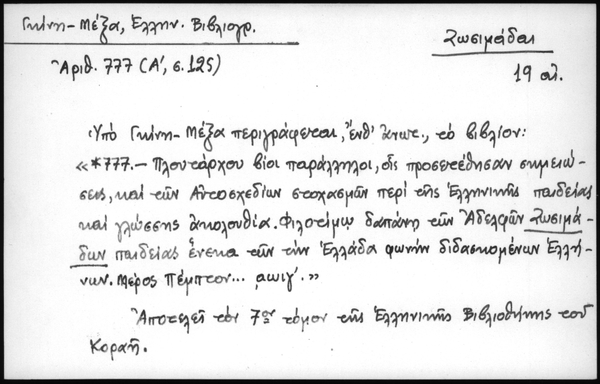 Γκίνη-Μέξα, Ἑλλην. Βιβλιογρ.
Ζωσιμάδαι
Ἀριθ. 777 (Α', σ. 125)
19 αἰ.
Ὑπὸ Γκίνη-Μέξα περιγράφεται, ἔνθ' ἀνωτ., τὸ βιβλίον:
«*777.— Πλουτάρχου βίοι παράλληλοι, οἷς προσετέθησαν σημειώ-
σεις, καὶ τῶν Αὐτοσχεδίων στοχασμῶν περὶ τῆς Ἑλληνικῆς παιδείας
καὶ γλώσσης ἀκολουθία. Φιλοτίμῳ δαπάνῃ τῶν Ἀδελφῶν Ζωσιμά-
δων παιδείας ἕνεκα τῶν τὴν Ἑλλάδα φωνὴν διδασκομένων Ἑλλή-
νων. Μέρος Πέμπτον... ͵αωιγ'.»
Ἀποτελεῖ τὸν 7ον τόμον τῆς Ἑλληνικῆς Βιβλιοθήκης τοῦ
Κοραῆ.